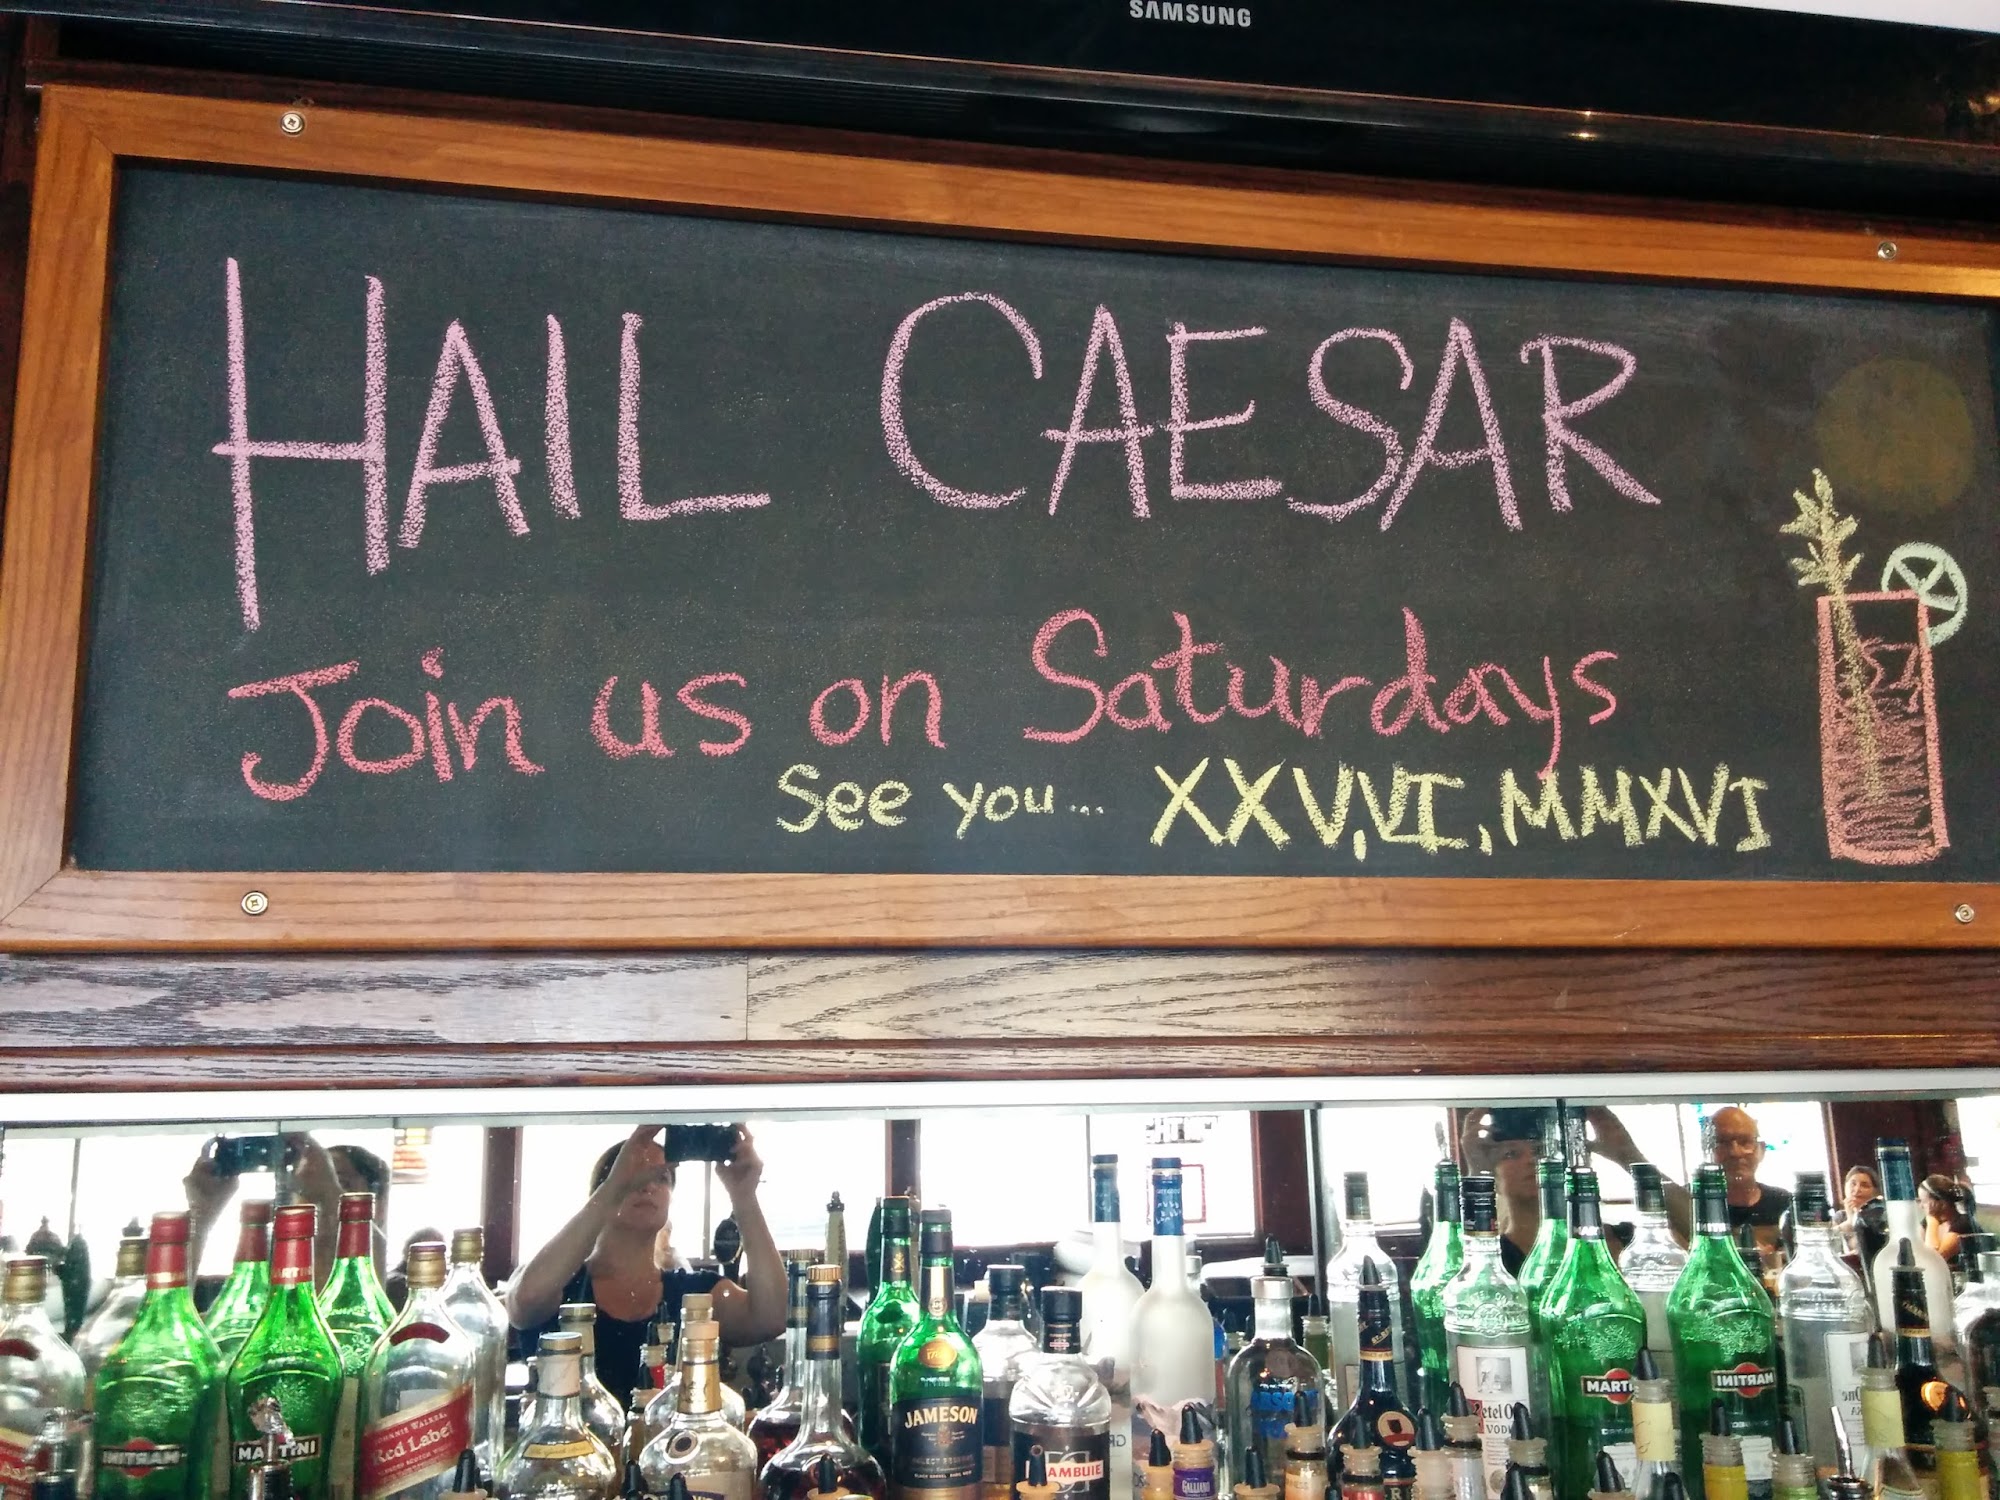 SAMSUNG
HAIL CAESAR
Join us on Saturdays
See you... XXV,VI,MMXVI
MARTINI
MARTINI
JOHNNIE WALKER
Red Label
JAMESON
AMBUIE
GALLIANO
ABSOLUT
VODKA
MARTI
MARTINI